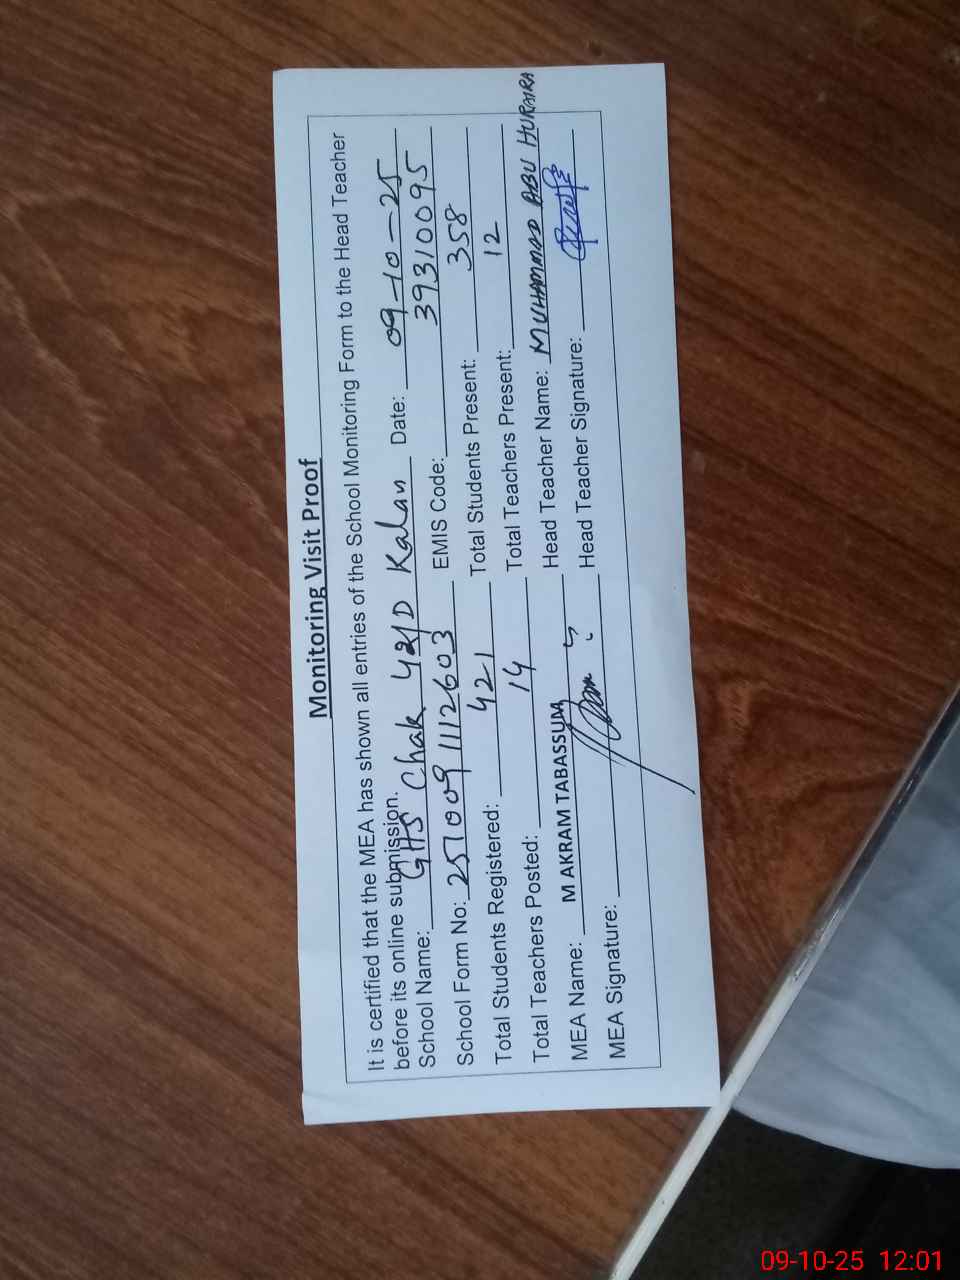 Monitoring Visit Proof
It is certified that the MEA has shown all entries of the School Monitoring Form to the Head Teacher
before its online submission.
School Name: GHS Chak 42/D Kalan Date: 09-10-25
School Form No: 2510091112603 EMIS Code: 39310095
Total Students Registered: 421 Total Students Present: 358
Total Teachers Posted: 14 Total Teachers Present: 12
MEA Name: M AKRAM TABASSUM Head Teacher Name: MUHAMMAD ABU HURAIRA
MEA Signature: Head Teacher Signature:
09-10-25 12:01